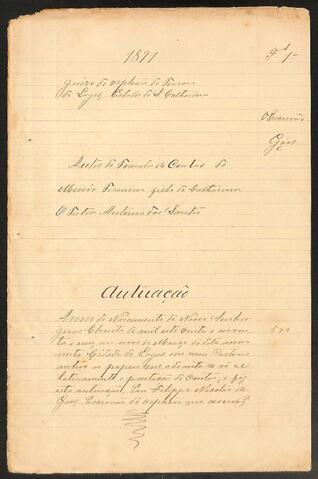 1891
Fl 1
Juizo de orphãos do Termo
de Lages, Estado de S. Catharina
O Escrivão
Góes
Autos de Tomada de Contas do
Menór Firmino filho de Catharina
O Tutor Antonio dos Santos
Autuação
Anno do Nascimento de Nosso Senhor
Jesus Christo de mil oito centos e noven
ta e um, aos nove de Março do dito anno
nesta Cidade de Lages em meu Cartorio
autuo o que adiante se vê re
lativamente a prestação de Contas; e faço
esta autuação. Eu Filippe Nicolao de
Góes Escrivão de orphãos que escrevi